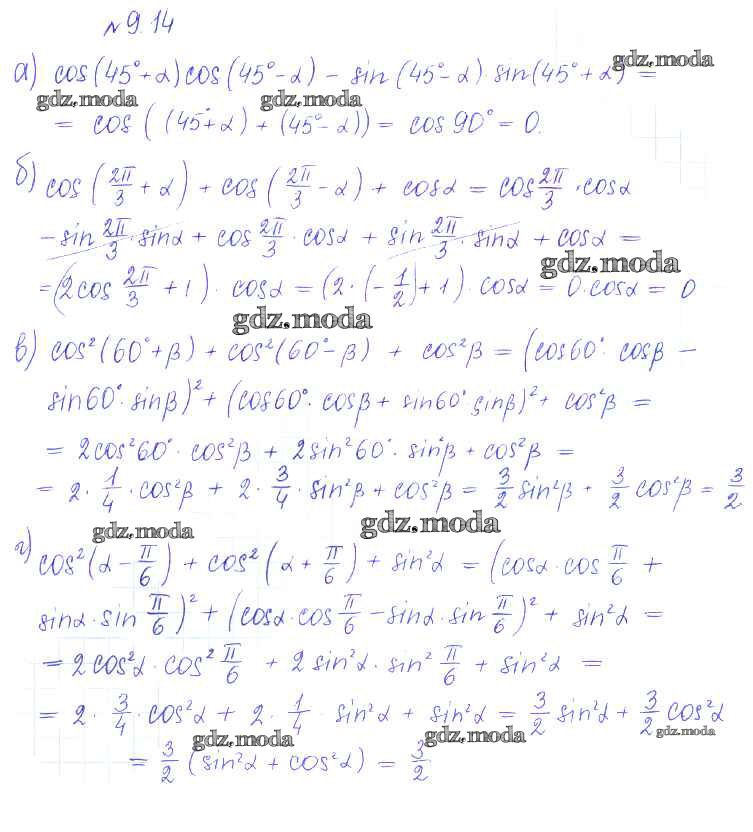 № 9.14
а) cos(45°+α)cos(45°-α) - sin(45°-α)·sin(45°+α) =
gdz.moda
gdz.moda gdz.moda
= cos((45°+α) + (45°-α)) = cos 90° = 0.
б) cos(2π/3 + α) + cos(2π/3 - α) + cosα = cos 2π/3 · cosα
- sin 2π/3 · sinα + cos 2π/3 · cosα + sin 2π/3 · sinα + cosα =
gdz.moda
= (2cos 2π/3 + 1) · cosα = (2·(-1/2)+1) · cosα = 0·cosα = 0
gdz.moda
в) cos²(60°+β) + cos²(60°-β) + cos²β = (cos60° · cosβ -
sin60° · sinβ)² + (cos60° · cosβ + sin60° sinβ)² + cos²β =
= 2cos²60° · cos²β + 2sin²60° · sin²β + cos²β =
= 2 · 1/4 · cos²β + 2 · 3/4 · sin²β + cos²β = 3/2 sin²β + 3/2 cos²β = 3/2
gdz.moda gdz.moda
г) cos²(α - π/6) + cos²(α + π/6) + sin²α = (cosα · cos π/6 +
sinα · sin π/6)² + (cosα · cos π/6 - sinα · sin π/6)² + sin²α =
= 2cos²α · cos² π/6 + 2 sin²α · sin² π/6 + sin²α =
= 2 · 3/4 · cos²α + 2 · 1/4 · sin²α + sin²α = 3/2 sin²α + 3/2 cos²α
gdz.moda gdz.moda gdz.moda
= 3/2 (sin²α + cos²α) = 3/2